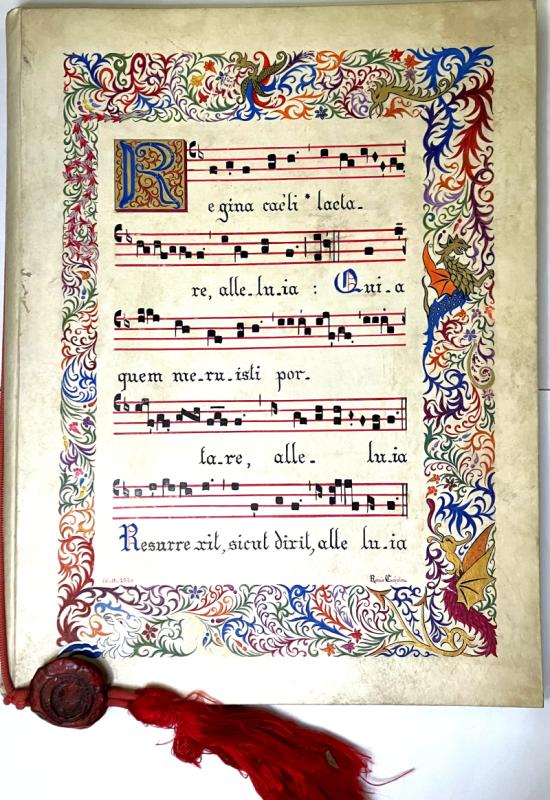 Regina caeli * laeta-
re, alle-lu-ia : Qui-a
quem me-ru-isti por-
ta-re, alle- lu-ia
Resurre xit, sicut dixit, alle lu-ia